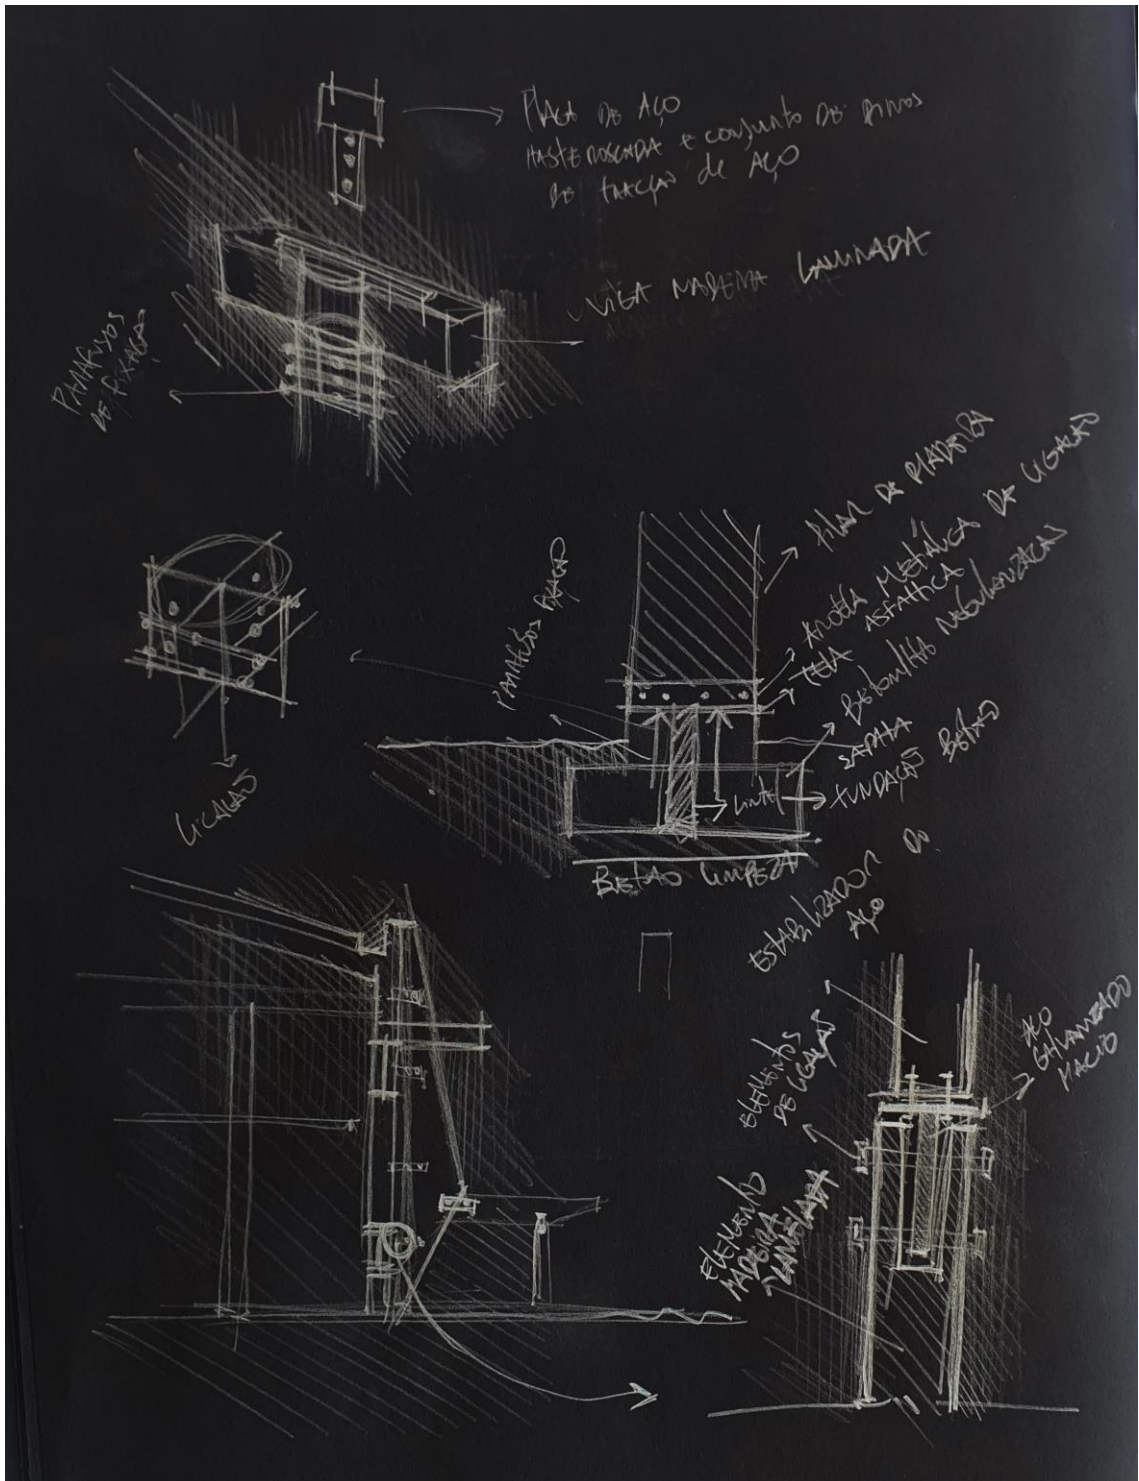 PLACA DE AÇO
HASTE ROSCADA E CONJUNTO DE PINOS
DE TRACÇÃO de AÇO
VIGA MADEIRA LAMINADA
PARAFUSOS
DE FIXAÇÃO
PILAR DE MADEIRA
ANCORA METÁLICA DE LIGAÇÃO
TELA ASFALTICA
BETONILHA REGULARIZACAO
SAPATA
FUNDAÇÃO BETÃO
PARAFUSOS FIXAÇÃO
LIGACAO
LINTEL
BETÃO LIMPEZA
ESTABILIZADOR DO
AÇO
ELEMENTOS
DE LIGAÇÃO
AÇO
GALVANIZADO
MACIO
ELEMENTO
MADEIRA
LAMELADA